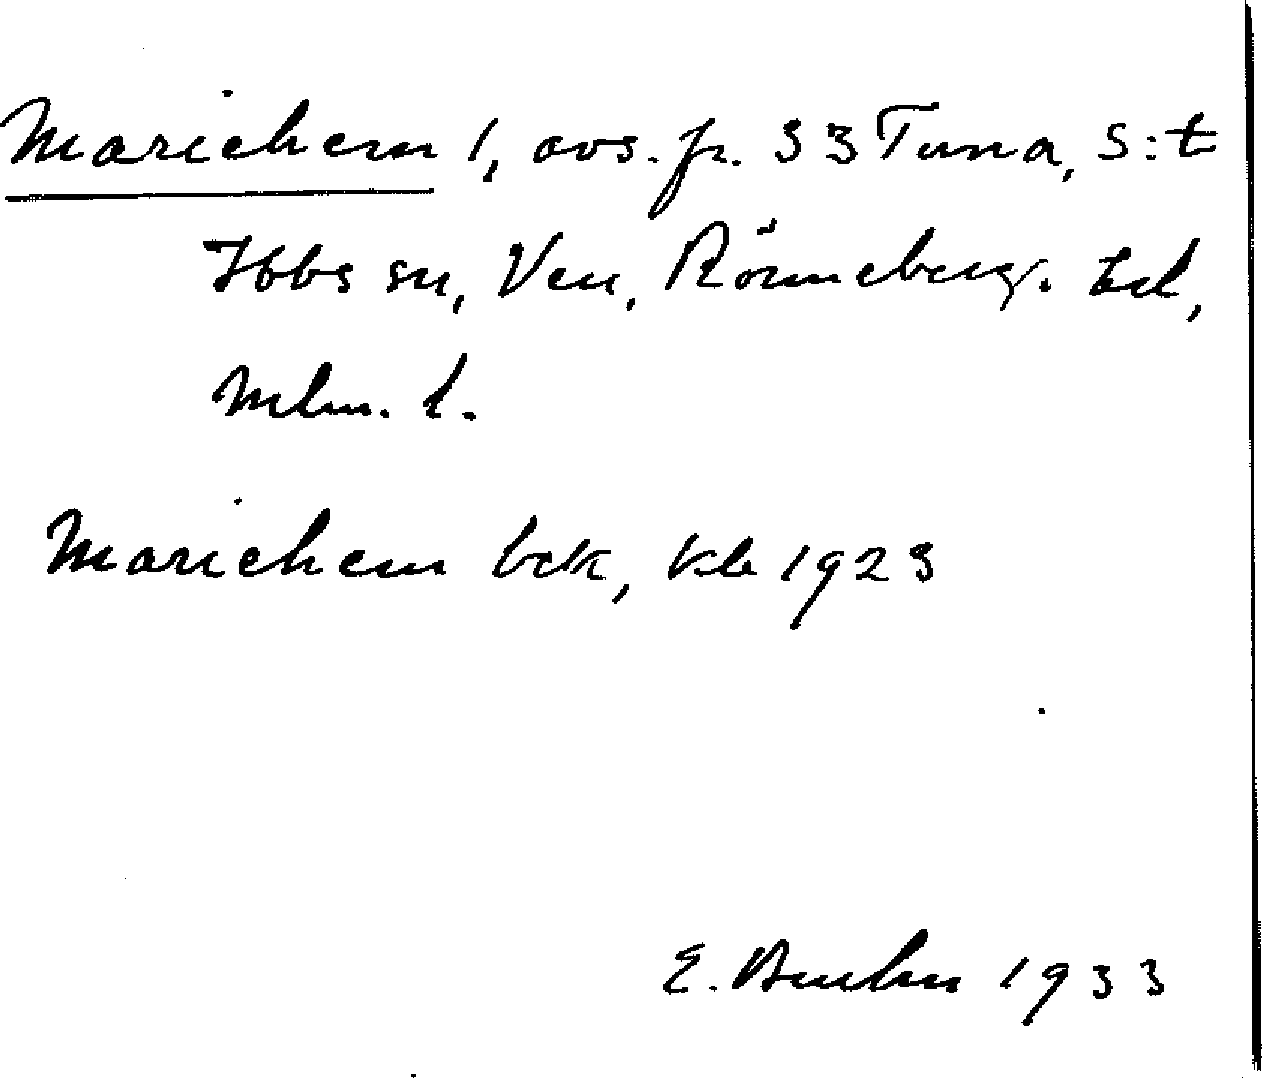 Mariehem 1, avs. fr. 33 Tuna, S:t
Ibbs sn, Ven, Rönneberg. hd,
Mlm. l.
Mariehem bek, Kb 1923
E. 1933